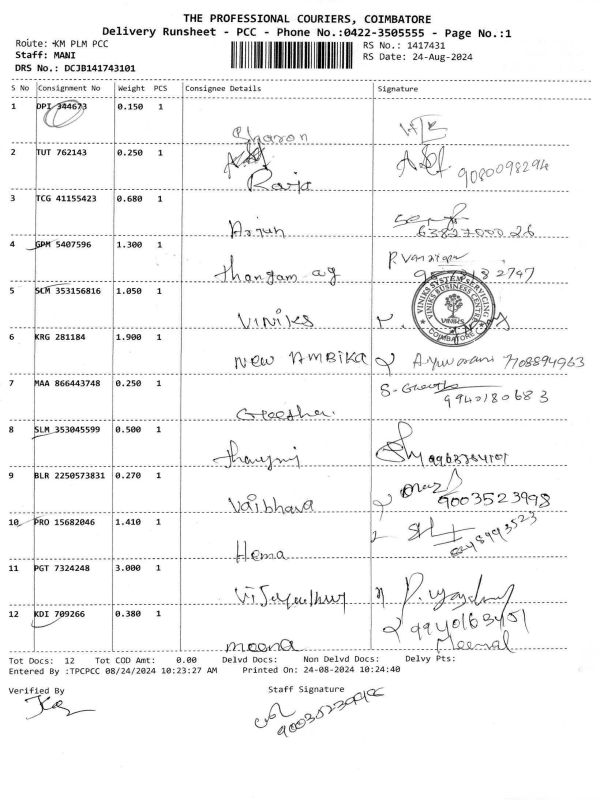 THE PROFESSIONAL COURIERS, COIMBATORE
Delivery Runsheet - PCC - Phone No.:0422-3505555 - Page No.:1
Route: KM PLM PCC RS No.: 1417431
Staff: MANI RS Date: 24-Aug-2024
DRS No.: DCJB141743101
S No Consignment No Weight PCS Consignee Details Signature
1 DPI 344673 0.150 1
Sharon
2 TUT 762143 0.250 1
Raja 9080098294
3 TCG 41155423 0.680 1
Arjun 6382700026
4 GPM 5407596 1.300 1
thangam ag
5 SLM 353156816 1.050 1
VINIKS SYSTEM SERVICING
VINIKS BUSINESS CENTRE
VINIKS
COIMBATORE
VINIKS
6 KRG 281184 1.900 1
NEW AMBIKA 7708894963
7 MAA 866443748 0.250 1
Geetha 9940180683
8 SLM 353045599 0.500 1
9 BLR 2250573831 0.270 1
Vaibhava 9003523998
10 PRO 15682046 1.410 1
Hema
11 PGT 7324248 3.000 1
12 KDI 709266 0.380 1
meena Meenal
Tot Docs: 12 Tot COD Amt: 0.00 Delvd Docs: Non Delvd Docs: Delvy Pts:
Entered By :TPCPCC 08/24/2024 10:23:27 AM Printed On: 24-08-2024 10:24:40
Verified By Staff Signature